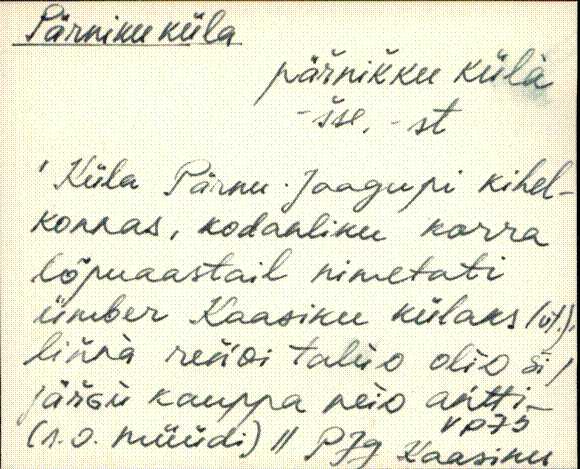 Pärniku küla
pärnikku külä
-sse, -st
'Küla Pärnu-Jaagupi kihel-
konnas, kodanliku korra
lõpuaastail nimetati
ümber Kaasiku külaks (vt.),
linna rendi talu
kauppa neid antti
(s.o. müüdi) // PJg Kaasiku